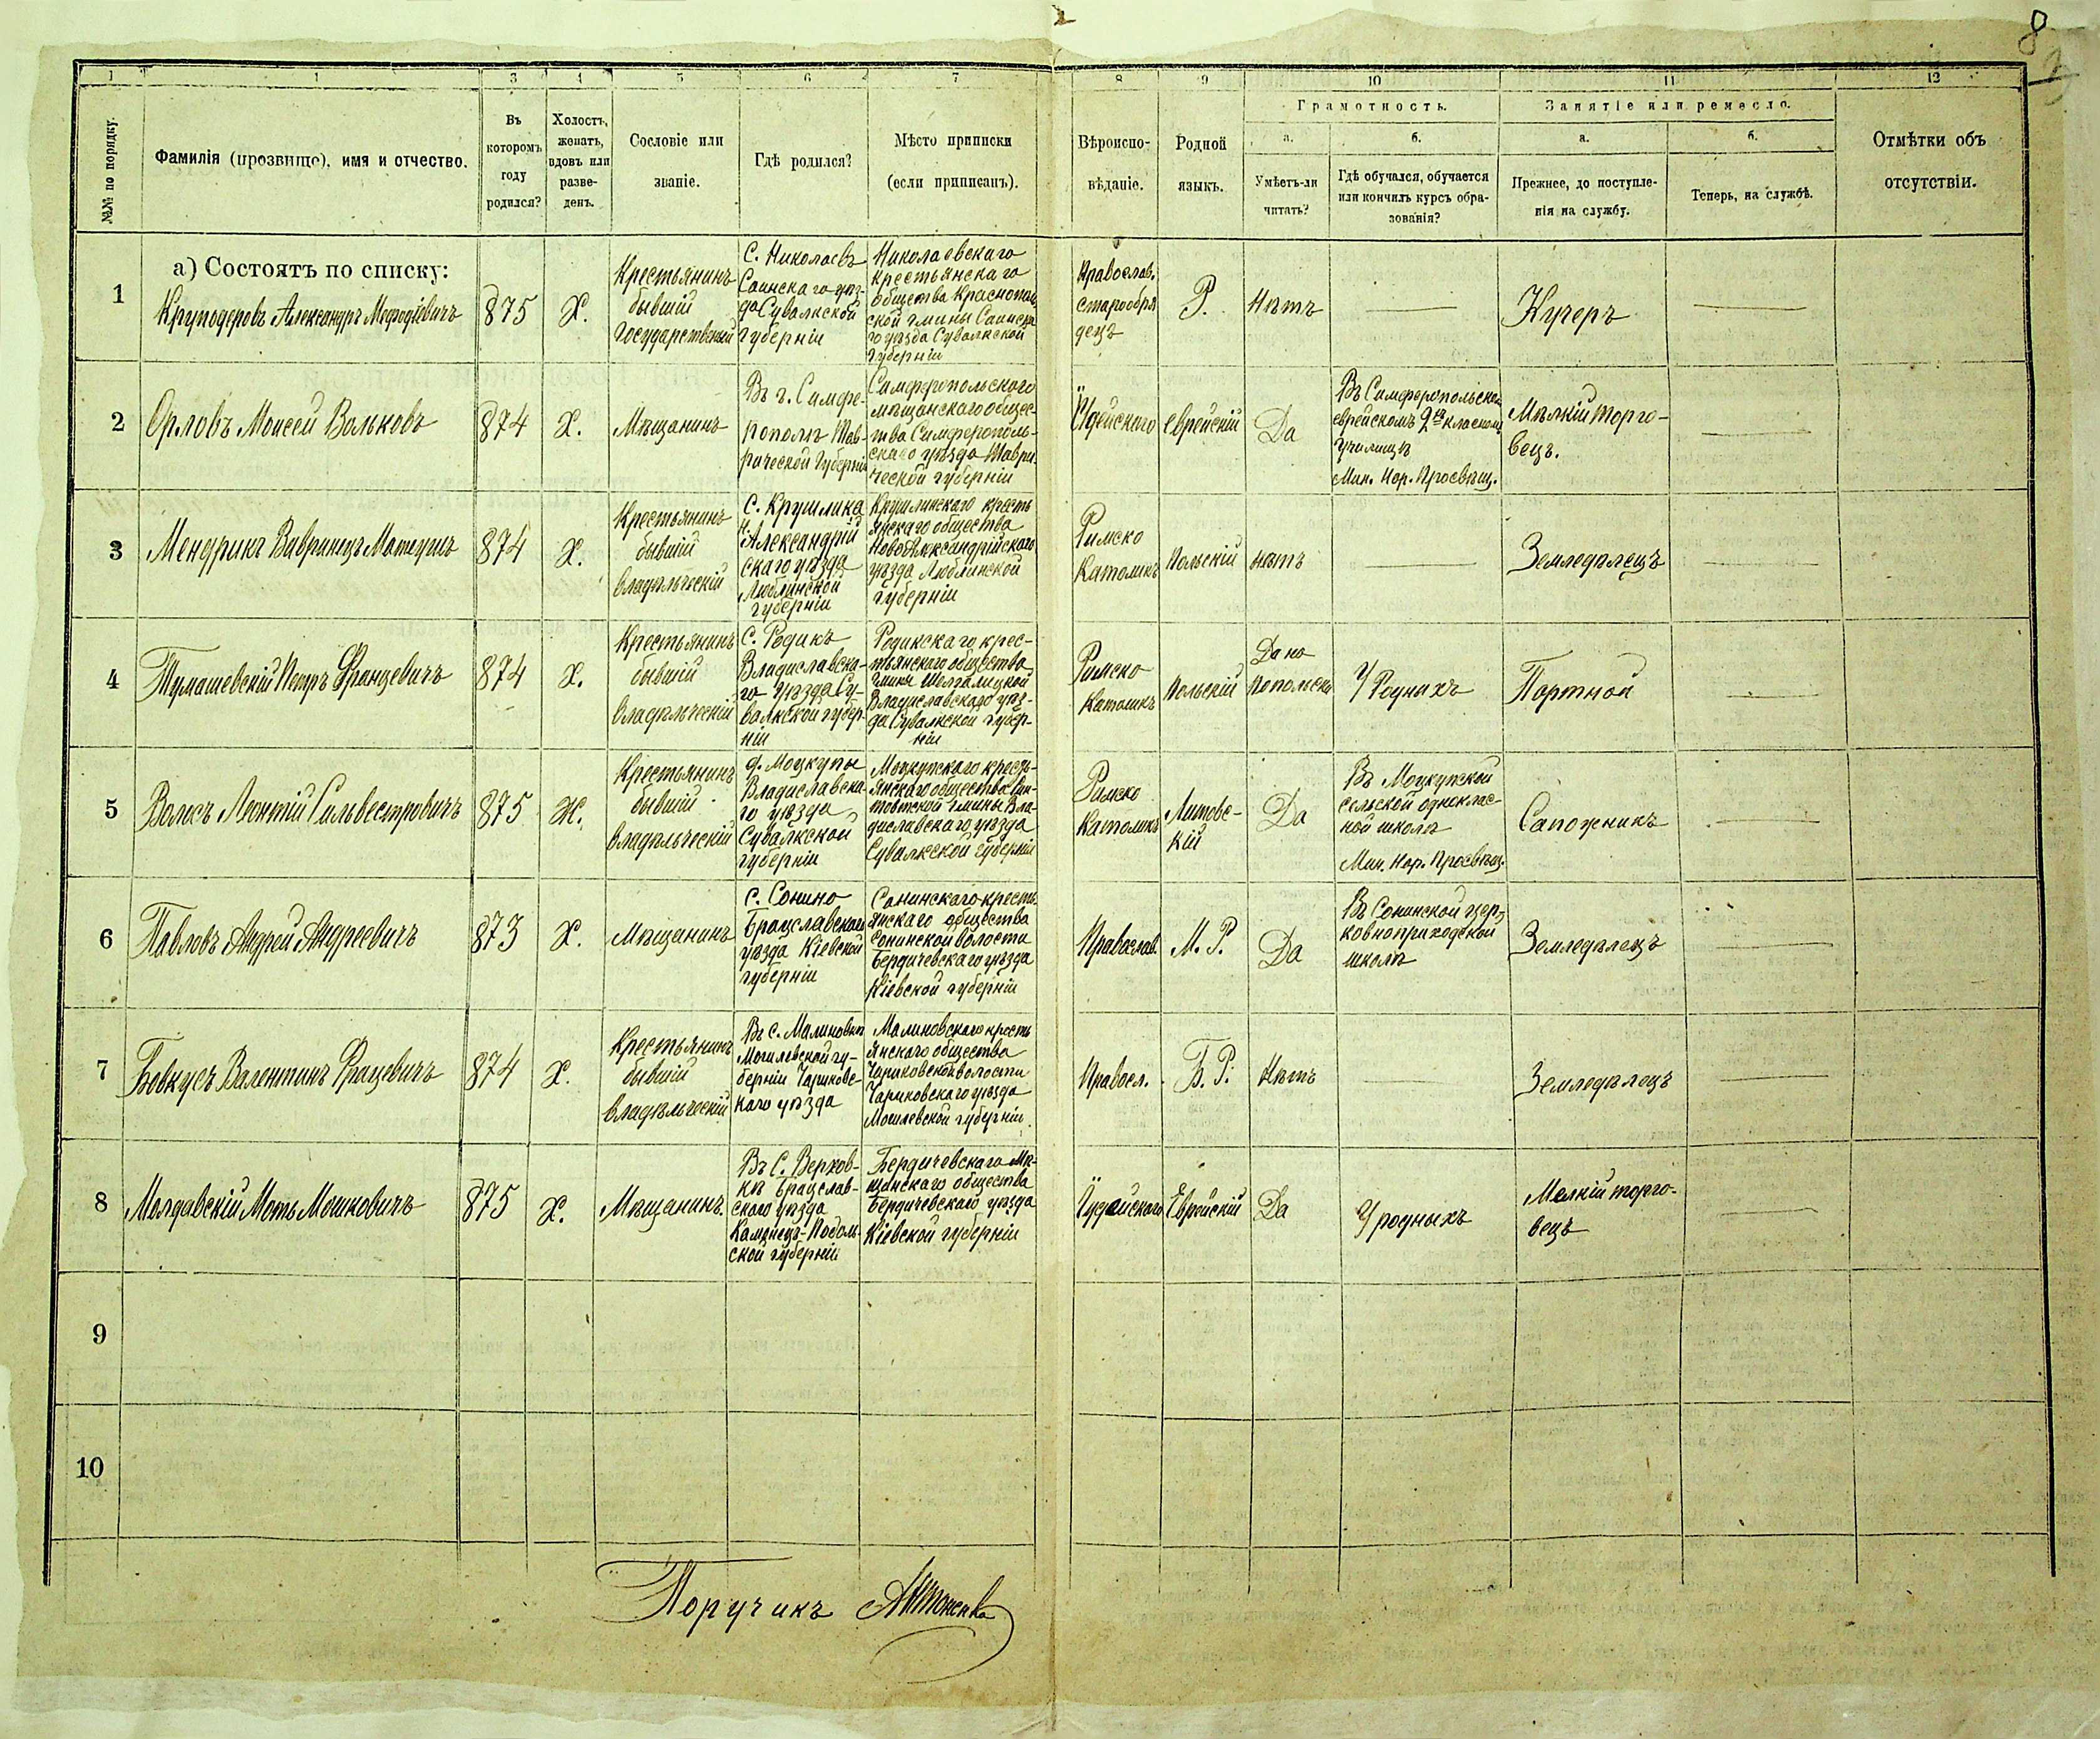 8
1
1
3
4
5
6
7
8
9
10
11
12
№№ по порядку.
Фамилія (прозвище), имя и отчество.
Въ
которомъ
году
родился?
Холостъ,
женатъ,
вдовъ или
разве-
денъ.
Сословіе или
званіе.
Гдѣ родился?
Мѣсто приписки
(если приписанъ).
Вѣроиспо-
вѣданіе.
Родной
языкъ.
Грамотность.
а.
Умѣетъ-ли
читать?
б.
Гдѣ обучался, обучается
или кончилъ курсъ обра-
зованія?
Занятіе или ремесло.
а.
Прежнее, до поступле-
нія на службу.
б.
Теперь, на службѣ.
Отмѣтки объ
отсутствіи.
а) Состоятъ по списку:
1
Круподеровъ Александръ Мефодіевичъ
875
Х.
Крестьянинъ
бывшій
государственный
С. Николаевъ
уѣз-
да Сувалкской
губерніи
Николаевскаго
крестьянскаго
общества
ской гмины
го уѣзда Сувалкской
губерніи
Православ.
старообря
децъ
Р.
Нѣтъ
Кучеръ
2
Орловъ Моисей Вольковъ
874
Х.
Мѣщанинъ
Въ г. Симфе-
рополѣ Тав-
рической губерніи
Симферопольского
мѣщанскаго общес-
тва Симферополь-
скаго уѣзда Таври-
ческой губерніи
еврейскій
Да
Въ Симферопольском
еврейскомъ 2хъ класном
училищѣ
Мин. Нар. Просвѣщ.
Мѣлкій торго-
вецъ.
3
Мендрикъ Вавринецъ Матеушъ
874
Х.
Крестьянинъ
бывшій
владѣльческій
С. Крушлика
Н.
Александрій
скаго уѣзда
Люблинской
губерніи
Крушлинскаго кресть
янскаго общества
НовоАлександрійскаго
уѣзда Люблинской
губерніи
Римско
Католикъ
Польскій
нѣтъ
Земледѣлецъ
4
Тумашевскій Петръ Францевичъ
874
Х.
Крестьянинъ
бывшій
владѣльческій
С. Родикъ
Владиславска-
го уѣзда Су-
валкской губер-
ніи
Родикскаго крес-
тьянскаго общества
Владиславскаго уѣз-
да Сувалкской губер-
ніи
Римско
Католикъ
Польскій
Да но
попольски
У Родныхъ
Портной
5
Волксъ Леонтій Сильвестровичъ
875
Ж.
Крестьянинъ
бывшій
владѣльческій
д. Моцкупы
Владиславска-
го уѣзда
Сувалкской
губерніи
Моцкупскаго кресть-
янскаго общества Син-
товтской гмины Вла-
диславскаго уѣзда
Сувалкской губерніи
Римско
Католикъ
Литовс-
кій
Да
Въ Моцкупской
сельской одноклас-
ной школѣ
Мин. Нар. Просвѣщ.
Сапожникъ
6
Павловъ Андрей Андреевичъ
873
Х.
Мѣщанинъ
с. Сонино
Брацславскаго
уѣзда Кіевской
губерніи
Сонинскаго кресть-
янскаго общества
Сонинской волости
Бердичевскаго уѣзда
Кіевской губерніи
Православ.
М. Р.
Да
Въ Сонинской цер-
ковноприходской
школѣ
Земледѣлецъ
7
Бовкусъ Валентинъ Францевичъ
874
Х.
Крестьянинъ
бывшій
владѣльческій
Въ с. Малиновкѣ
Могилевской гу-
берніи Чариковс-
каго уѣзда
Малиновскаго кресть
янскаго общества
Чариковской волости
Чариковскаго уѣзда
Могилевской губерніи.
Правосл.
Б. Р.
Нѣтъ
Земледѣлецъ
8
Молдавскій Моть Мошковичъ
875
Х.
Мѣщанинъ.
Въ С. Верхов-
кѣ Брацслав-
скаго уѣзда
Каменецъ-Подоль-
ской губерніи
Бердичевскаго Мѣ-
щанскаго общества
Бердичевскаго уѣзда
Кіевской губерніи
Іудейскаго
Еврейскій
Да
У родныхъ
Мелкій торго-
вецъ
9
10
Поручикъ